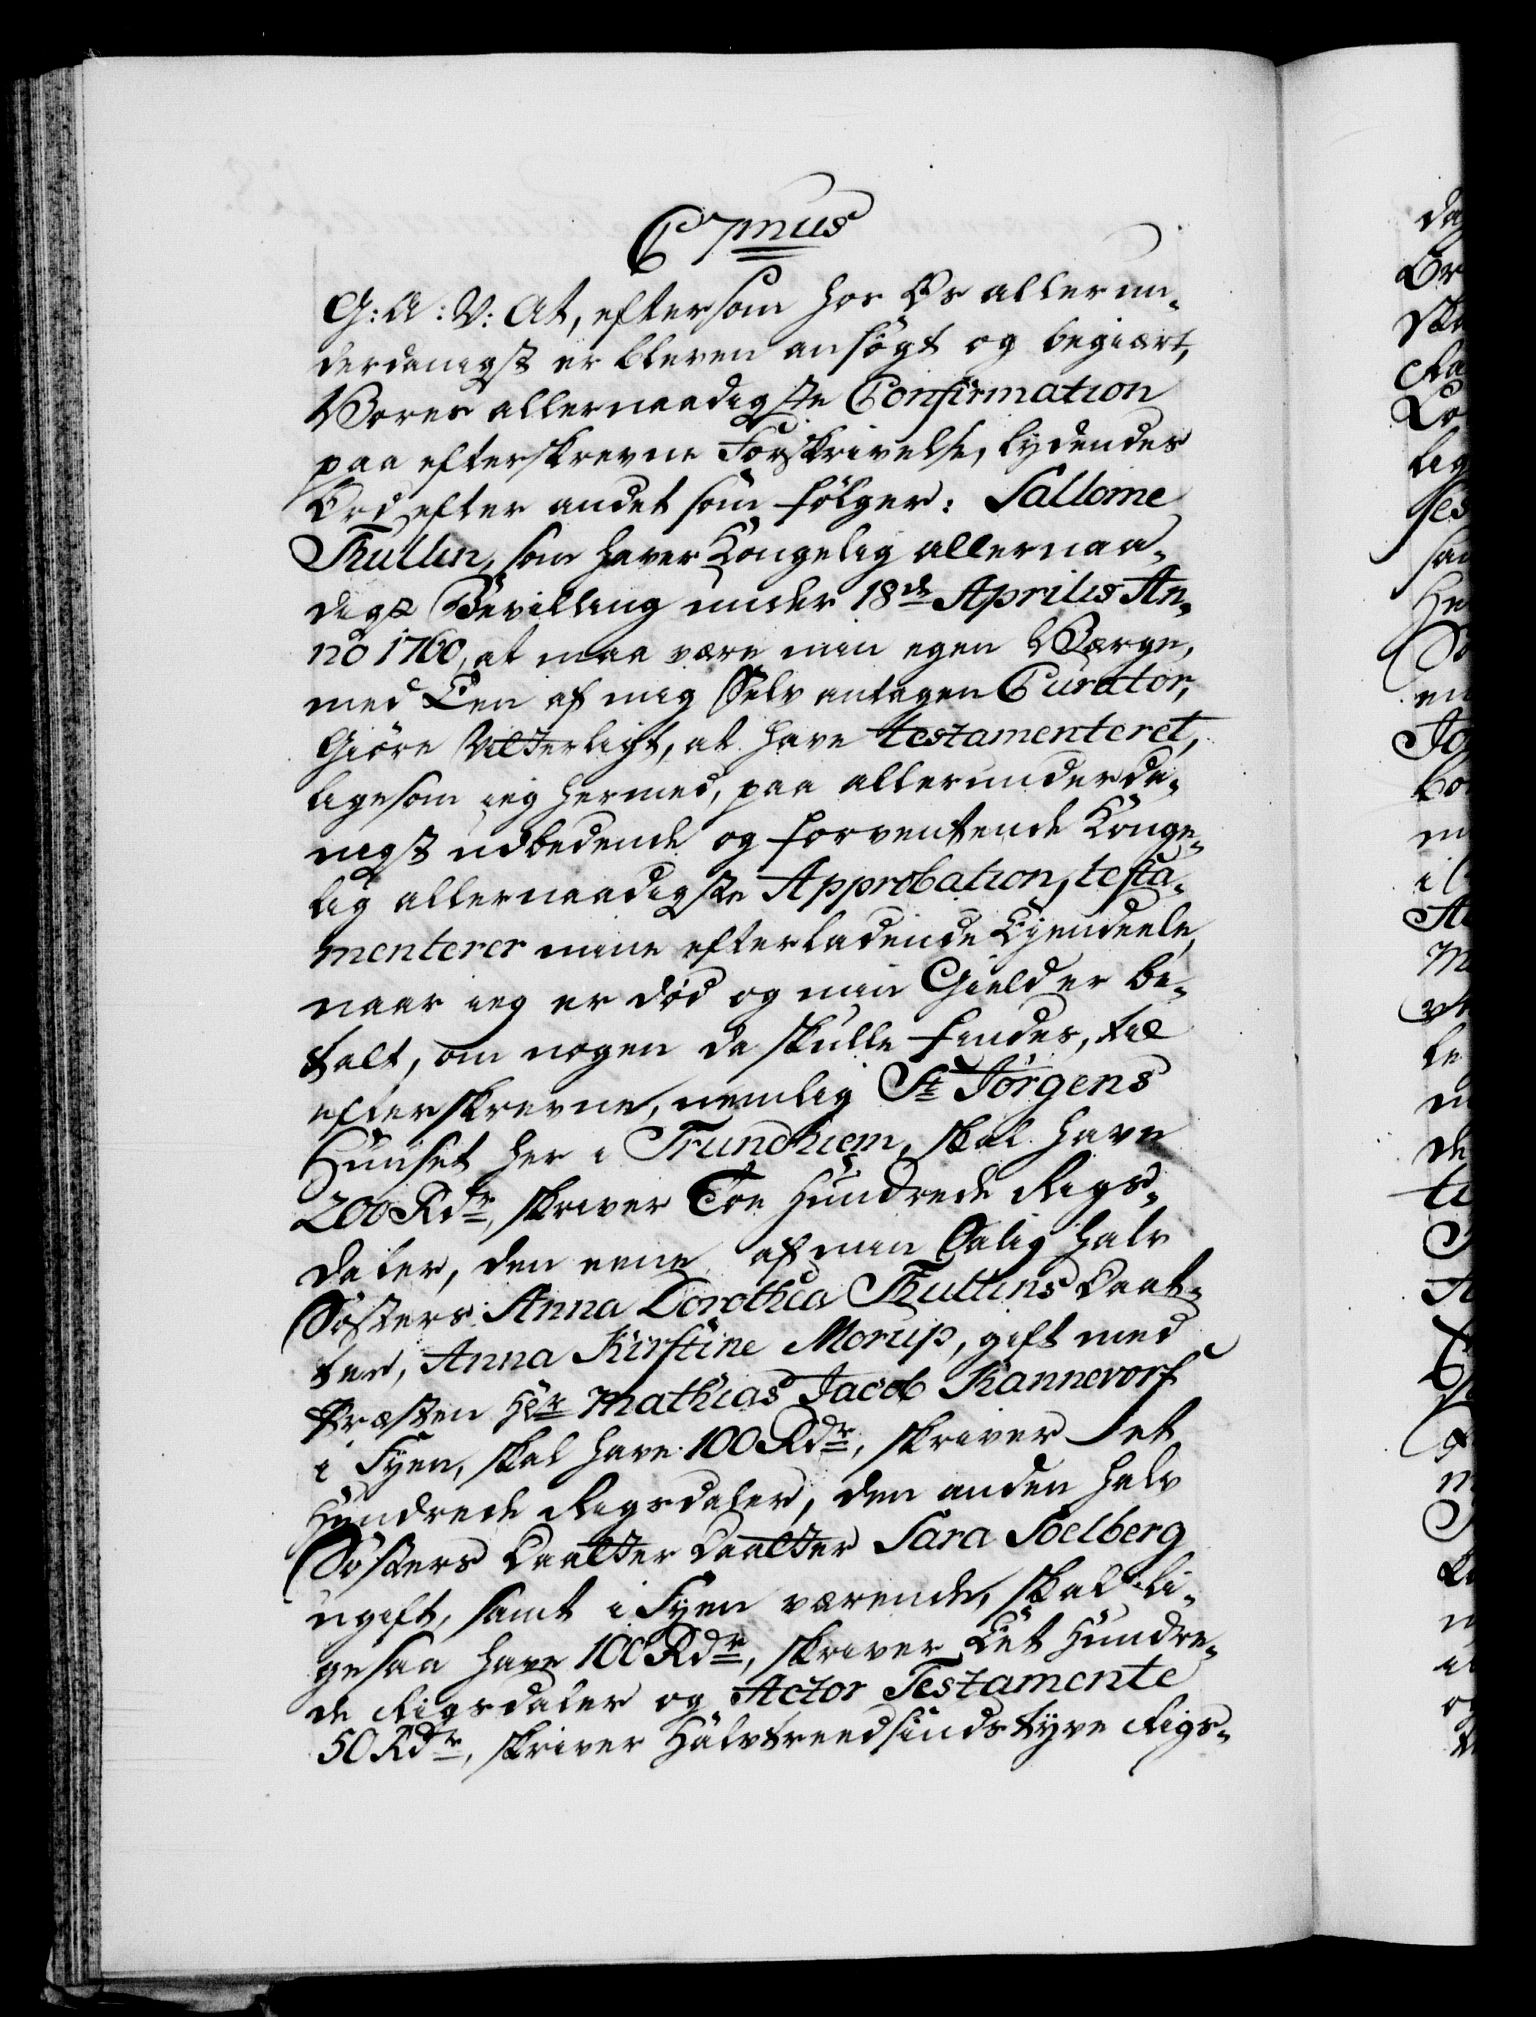 C7mus
G: A: V: At, eftersom hos Os allerun-
derdanigst er bleven ansøgt og begiært,
Vores allernaadigste Confirmation
paa efterskrevne Forskrivelse, lydendes
Ord efter andet som følger: Sallome
Thullin, som haver Kongelig allernaa-
digst Bevilling under 18de Aprilis An-
no 1760, at maa være min egen Værge,
med Een af mig Selv antagen Curator,
Giøre Vitterligt, at have testamenteret,
ligesom ieg hermed, paa allerunderda-
nigst udbedende og forventende Konge-
lig allernaadigste Approbation, testa-
menterer mine efterladende Eyendeele,
naar ieg er død og min Gield er be-
talt, om nogen da skulle findes, til
efterskrevne, nemlig St Jørgens
Huuset her i Trundhiem, skal have
200 Rdr, skriver Toe Hundrede Rigs-
daler, den eene af min Salig halv
Søsters Anna Dorothea Thullins Daat-
ter, Anna Kirstine Morup, gift med
Præsten Hr Mathias Jacob Kannevorf
i Fyen, skal have 100 Rdr, skriver et
Hundrede Rigsdaler, den anden halv
Søsters Daatter Daatter Sara Soelberg
ugift, samt i Fyen værende, skal li-
gesaa have 100 Rdr, skriver Eet Hundre-
de Rigsdaler og Actor Testamente
50 Rdr, skriver Halvtreedsindstyve Rigs-